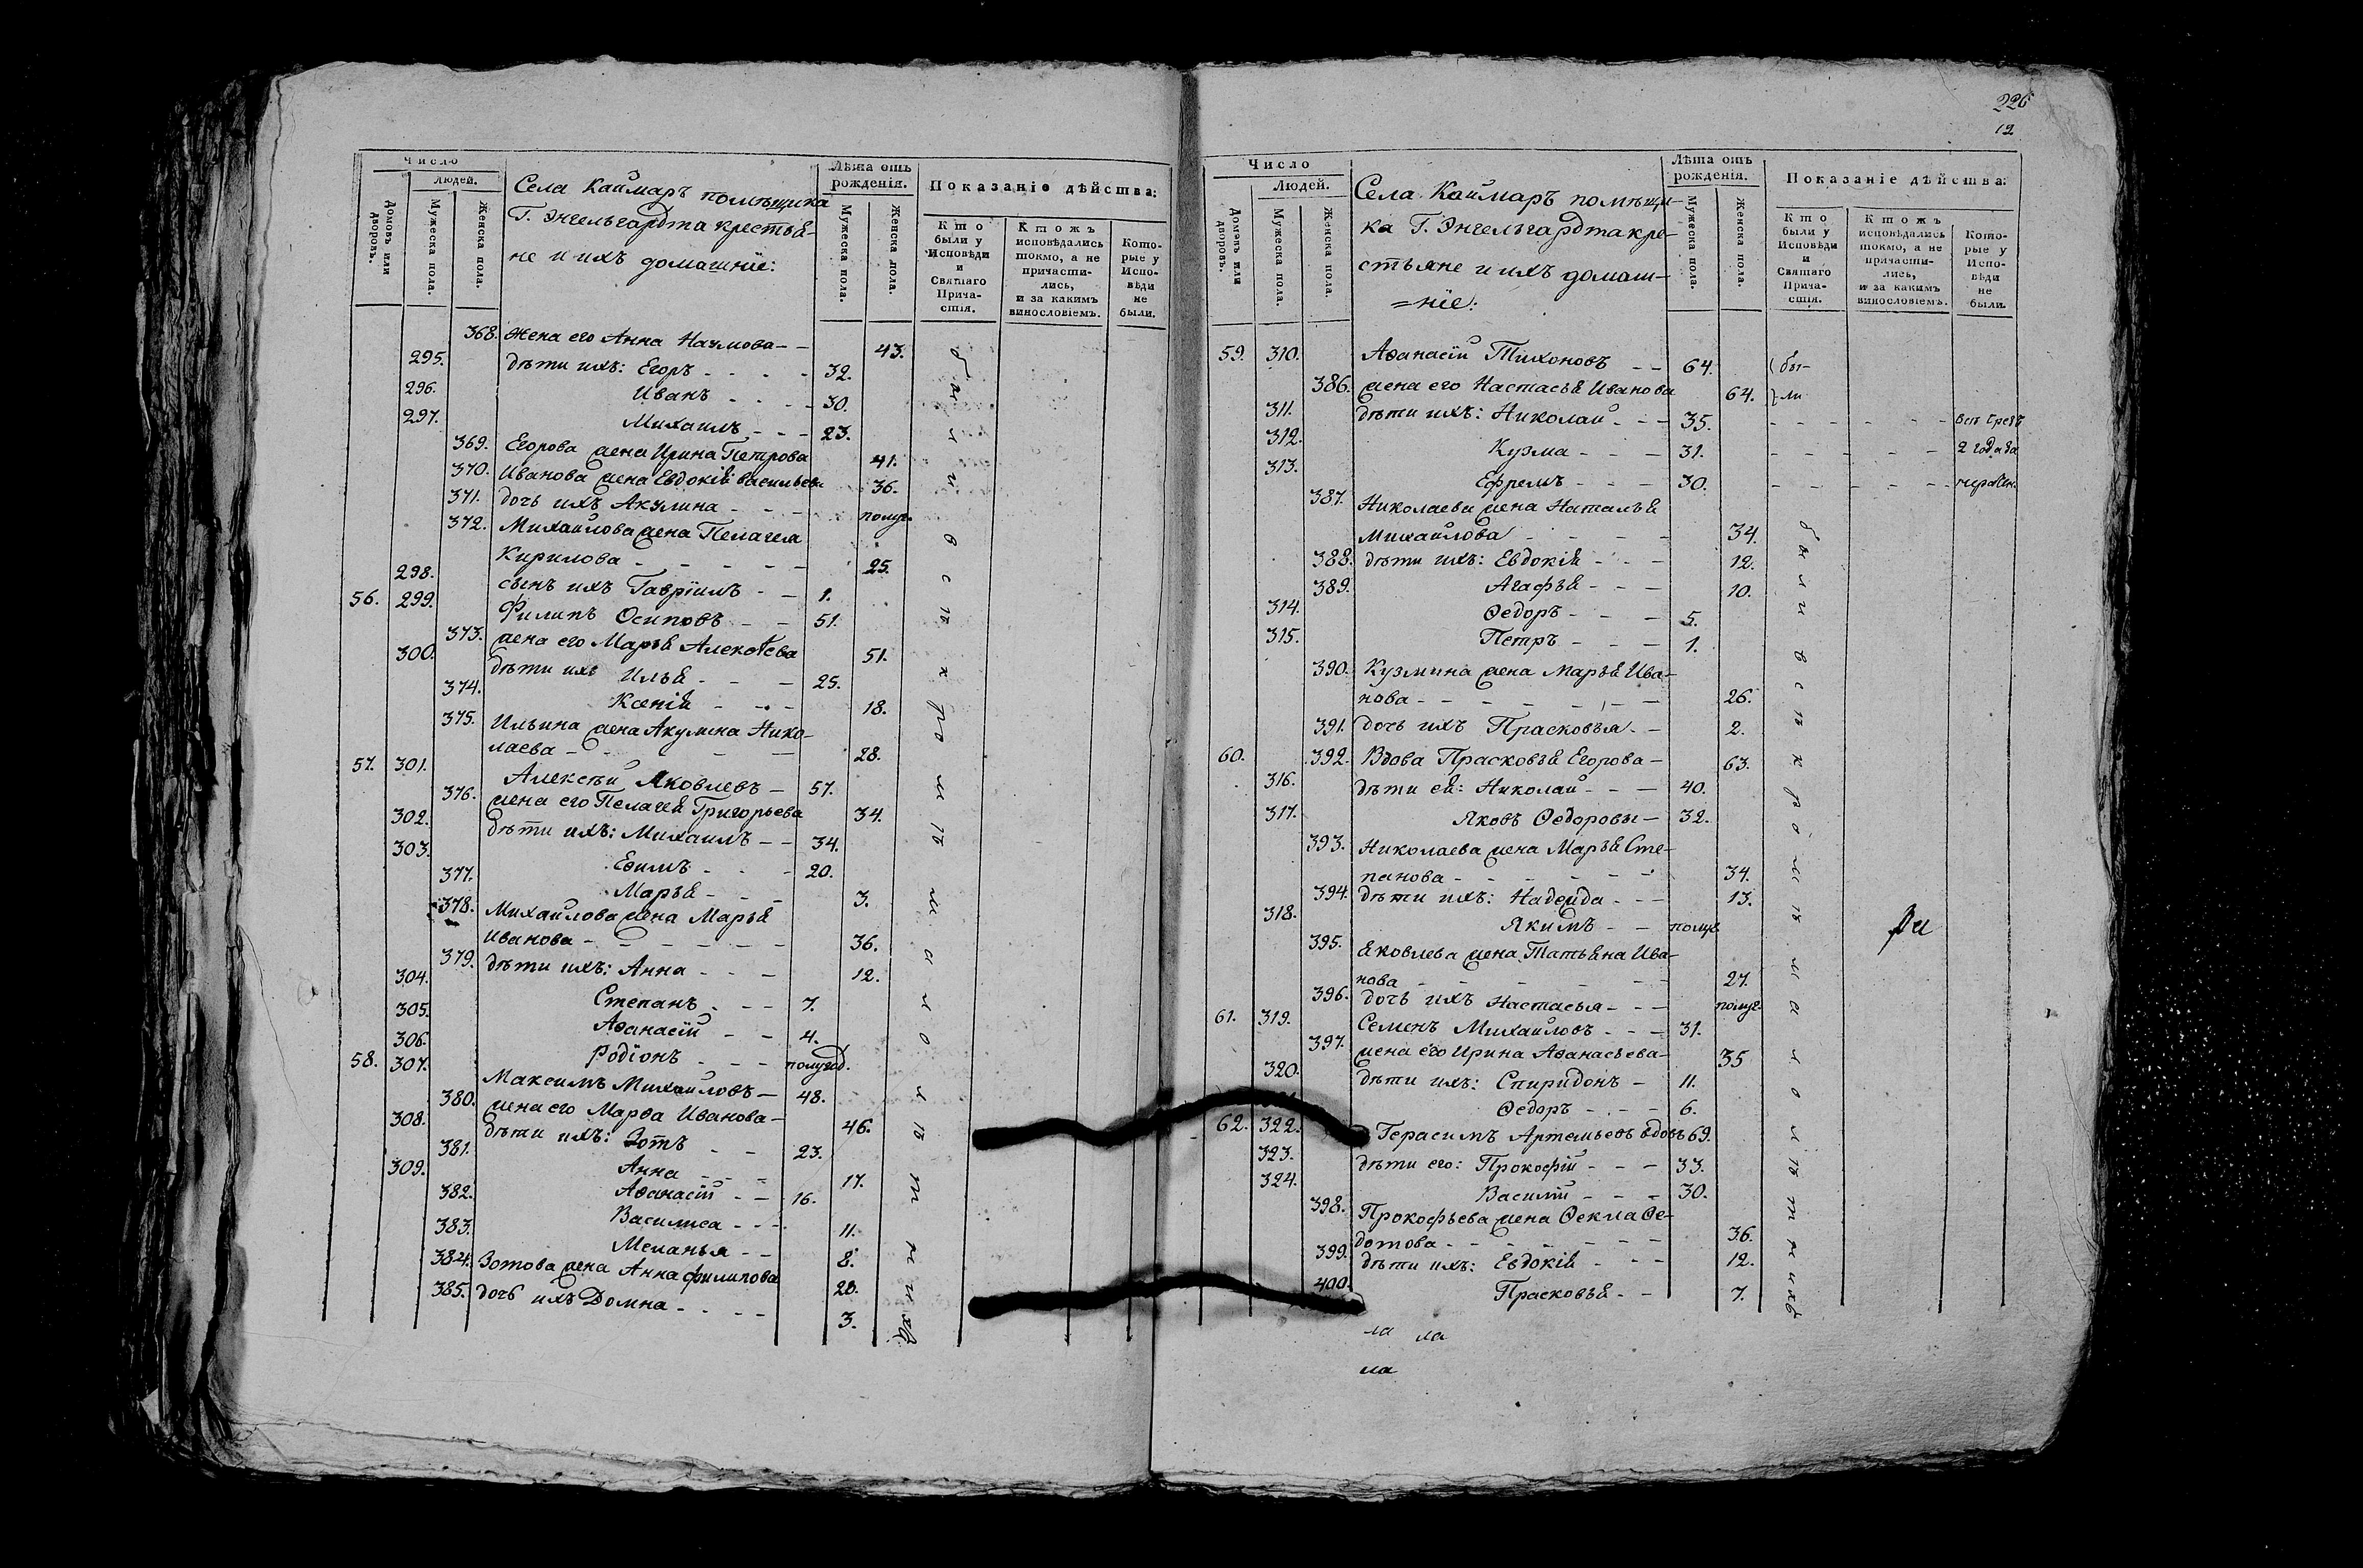 Число
людей.
Домовъ или дворовъ.
Мужеска пола.
Женска пола.
Села Каймаръ помѣщика
Г. Энгельгардта крестья-
не и ихъ домашніе:
Лѣта отъ
рожденія.
Мужеска пола.
Женска пола.
Показаніе дѣйства:
Кто
были у
Исповѣди
и
Святаго
Прича-
стія.
Ктожъ
исповѣдались
токмо, а не
причасти-
лись,
и за какимъ
винословіемъ.
Кото-
рые у
Испо-
вѣди
не
были.
368. Жена его Анна Наумова - - 43.
295. дѣти ихъ: Егоръ - - - - 32.
296. Иванъ - - - - 30.
297. Михаилъ - - - 23.
369. Егорова жена Ирина Петрова 41.
370. Иванова жена Евдокія Васильев. 36.
371. дочь ихъ Акулина - - - полуг.
372. Михайлова жена Пелагея
Кирилова - - - - - 25.
298. сынъ ихъ Гавріилъ - - 1.
56. 299. Филипъ Осиповъ - - 51.
373. жена его Марья Алексѣева 51.
300. дѣти ихъ Илья - - - 25.
374. Ксенія - - - 18.
375. Ильина жена Акулина Нико-
лаева - - - - 28.
57. 301. Алексѣй Яковлевъ - 57.
376. жена его Пелагея Григорьева 34.
302. дѣти ихъ: Михаилъ - - 34.
303. Ефимъ - - - 20.
377. Марья - - - 3.
378. Михайлова жена Марья
Иванова - - - - - - 36.
379. дѣти ихъ: Анна - - - 12.
304. Степанъ - - - 7.
305. Афанасій - - 4.
306. Родіонъ - - - полугод.
58. 307. Максимъ Михайловъ - 48.
380. жена его Марфа Иванова - 46.
308. дѣти ихъ: Зотъ - - 23.
381. Анна - - - 17.
309. Афанасій - - 16.
382. Василиса - - - 11.
383. Меланья - - 8.
384. Зотова жена Анна Филипова 20.
385. дочь ихъ Домна - - - - 3.
были
въ с
226
12
Число
Людей.
Домовъ или дворовъ.
Мужеска пола.
Женска пола.
Села Каймаръ помѣщи-
ка Г. Энгельгардта кре-
стьяне и ихъ домаш-
=ніе:
Лѣта отъ
рожденія.
Мужеска пола.
Женска пола.
Показаніе дѣйства:
Кто
были у
Исповѣди
и
Святаго
Прича-
стія.
Ктожъ
исповѣдались
токмо, а не
причасти-
лись,
и за какимъ
винословіемъ.
Кото-
рые у
Испо-
вѣди
не
были.
59. 310. Афанасій Тихоновъ - - 64. бы-
386. жена его Настасья Иванова 64. ли
311. дѣти ихъ: Николай - - - 35. - - - - -
312. Кузма - - - 31. - - - - - 2 года
313. Ефремъ - - - 30. - - - - -
387. Николаева жена Наталья
Михайлова - - - - 34.
388. дѣти ихъ: Евдокія - - - 12.
389. Агафья - - - 10.
314. Федоръ - - - 5.
315. Петръ - - - 1.
390. Кузмина жена Марья Ива-
нова - - - - - - - 26.
391. дочь ихъ Прасковья - - 2.
60. 392. Вдова Прасковья Егорова - 63.
316. дѣти ея: Николай - - - 40.
317. Яковъ Федоровы - 32.
393. Николаева жена Марья Сте-
панова - - - - - - 34.
394. дѣти ихъ: Надежда - - - 13.
318. Якимъ - - полуг.
395. Яковлева жена Татьяна Ива-
нова - - - - - - 27.
396. дочь ихъ Настасья - - - полуг.
61. 319. Семенъ Михайловъ - - - 31.
397. жена его Ирина Афанасьева - 35
320. дѣти ихъ: Спиридонъ - 11.
Федоръ - - - 6.
62. 322. Герасимъ Артемьевъ вдовъ 69.
323. дѣти его: Прокофій - - - 33.
324. Василій - - - 30.
398. Прокофьева жена Фекла Фе-
дотова - - - - - - 36.
399. дѣти ихъ: Евдокія - - - 12.
400. Прасковья - - 7.
были въ с въ кромѣ малолѣтнихъ
ла ла
ла